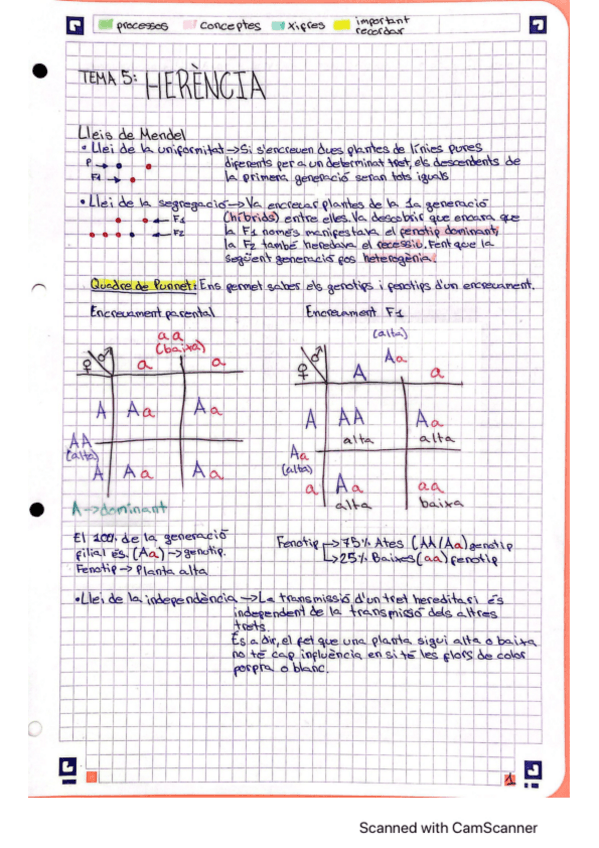 processos conceptes xifres important
recordar
TEMA 5: HERÈNCIA
Lleis de Mendel
• Llei de la uniformitat → Si s'encreuen dues plantes de línies pures
P → diferents per a un determinat tret, els descendents de
F1 → la primera generació seran tots iguals
• Llei de la segregació → Va encreuar plantes de la 1a generació
← F1 (híbrids) entre elles. Va descobrir que encara que
← F2 la F1 només manifestava el fenotip dominant,
la F2 també heredava el recessiu. Fent que la
següent generació fos heterogènia.
Quadre de Punnet: Ens permet saber els genotips i fenotips d'un encreuament.
Encreuament parental Encreuament F1
aa
(baixa)
♀ ♂ a a
A Aa Aa
AA
(alta)
A Aa Aa
A → dominant
(alta)
Aa
♀ ♂ A a
A AA Aa
alta alta
Aa
(alta)
a Aa aa
alta baixa
El 100% de la generació
filial és. (Aa) → genotip.
Fenotip → Planta alta
Fenotip → 75% Altes (AA/Aa) genotip
↳ 25% Baixes (aa) fenotip
• Llei de la independència → La transmissió d'un tret hereditari és
independent de la transmisió dels altres
trets
És a dir, el fet que una planta sigui alta o baixa
no té cap influència en si té les flors de color
porpra o blanc.
1
Scanned with CamScanner